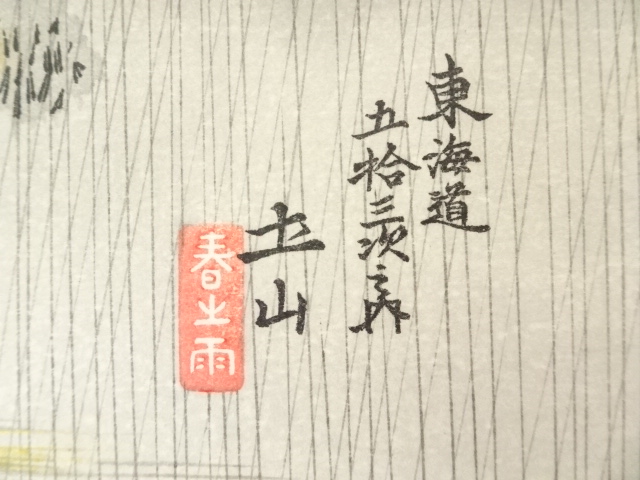 東海道
五拾三次之内
土山
春之雨